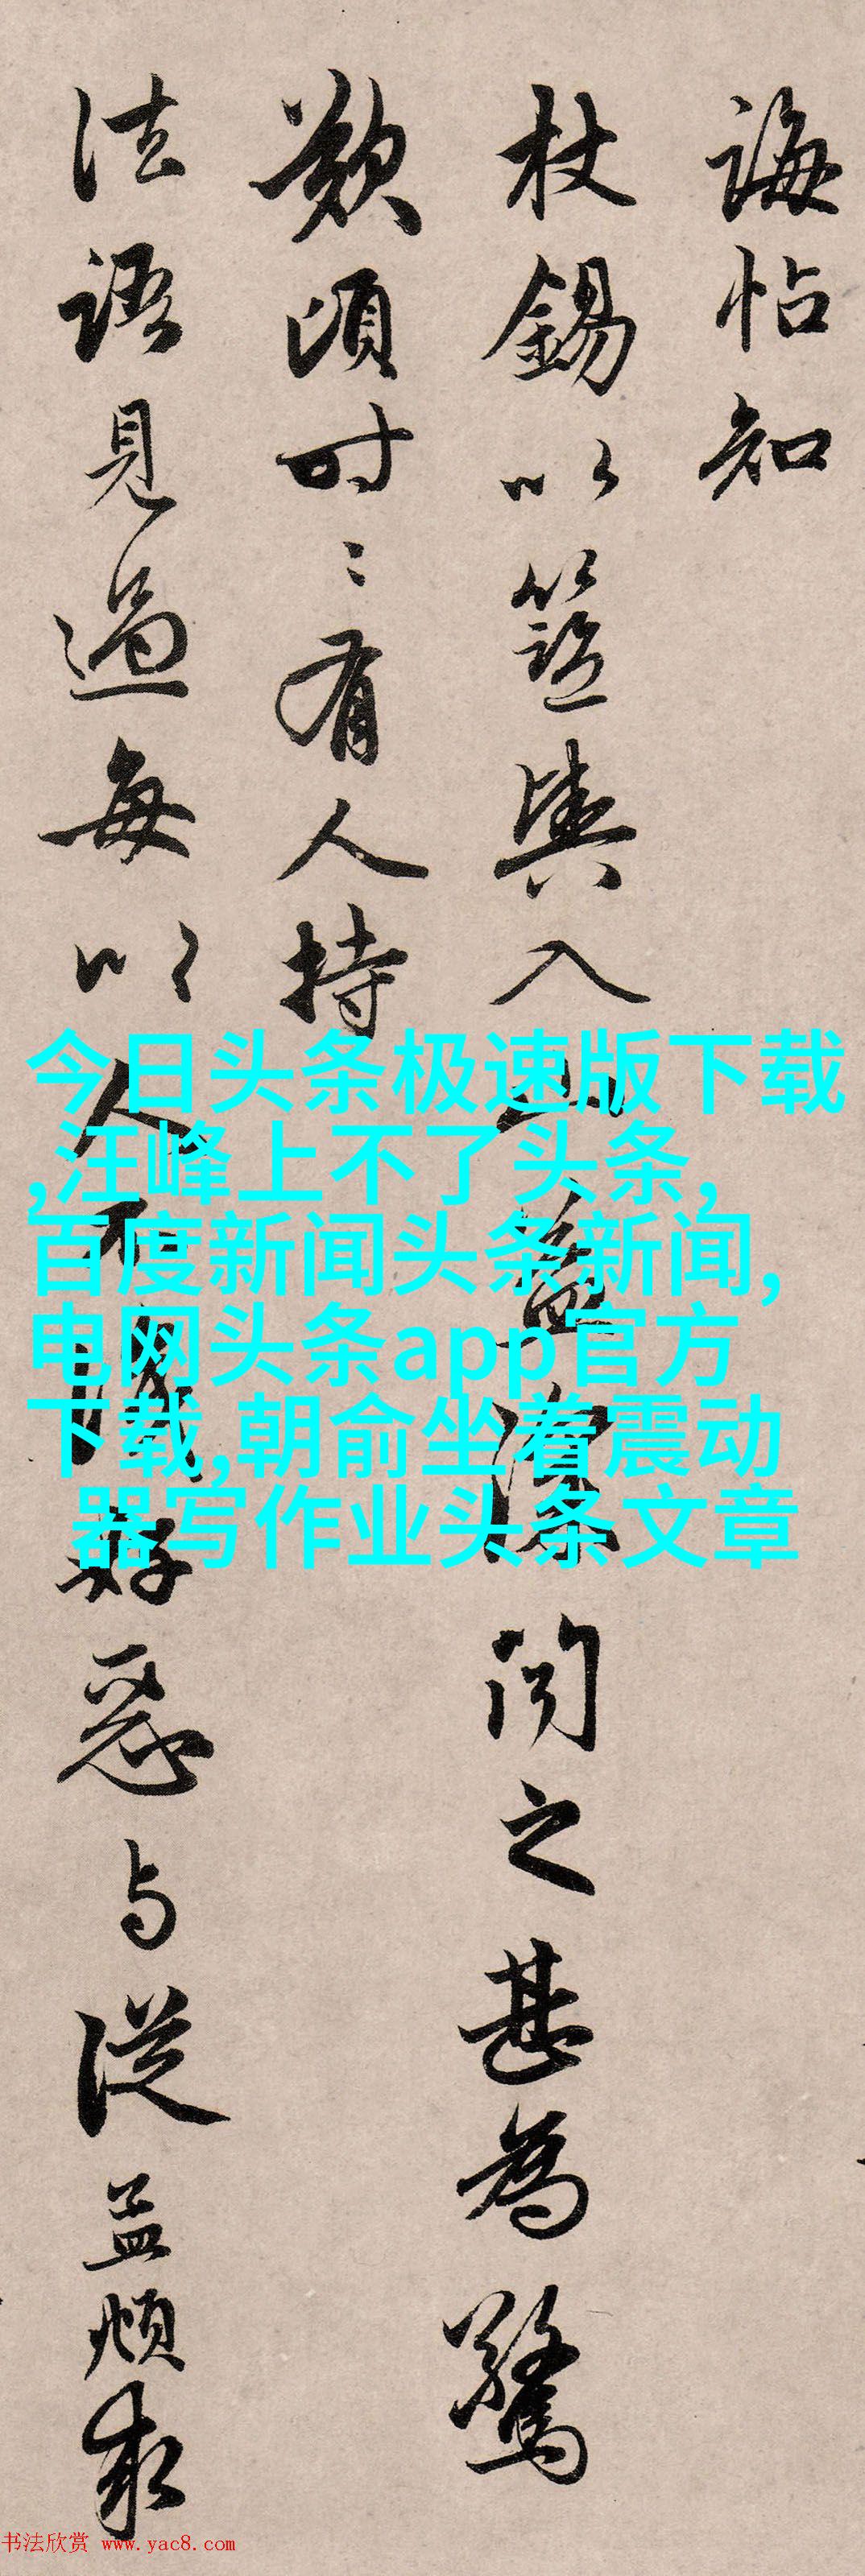 誨帖知
杖錫以籃輿入山益深聞之甚為驚
歎頃時時有人持
法語見過每以人不識好惡与從益煩取
今日头条极速版下载
,汪峰上不了头条,
百度新闻头条新闻,
电网头条app官方
下载,朝俞坐着震动
器写作业头条文章
书法欣赏 www.yac8.com